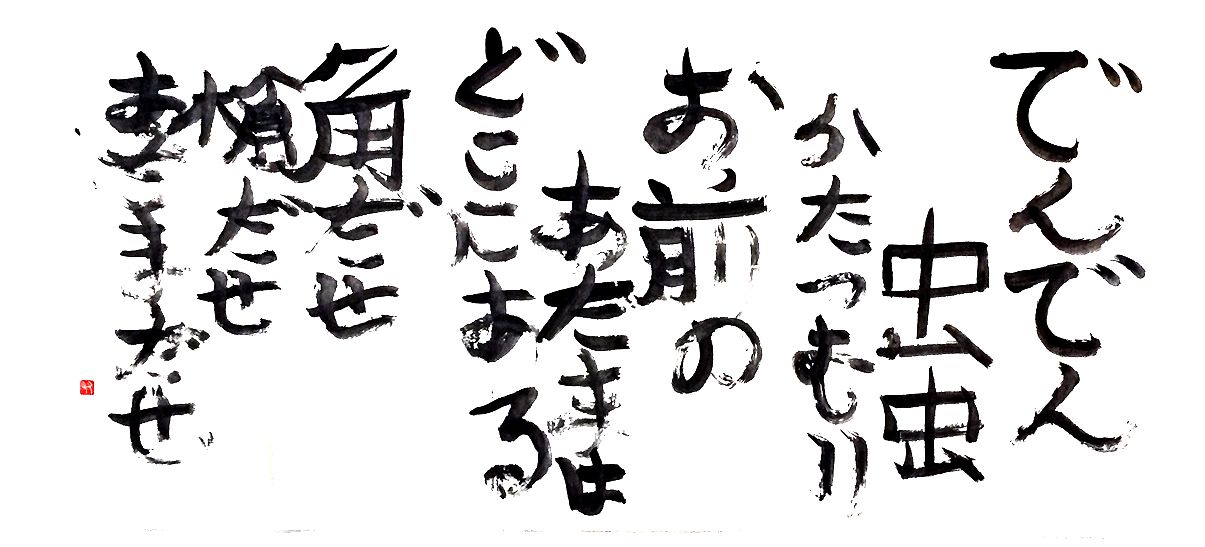 でんでん
虫虫
かたつむり
お前の
あたまは
どこにある
角だせ
槍だせ
あたまだせ